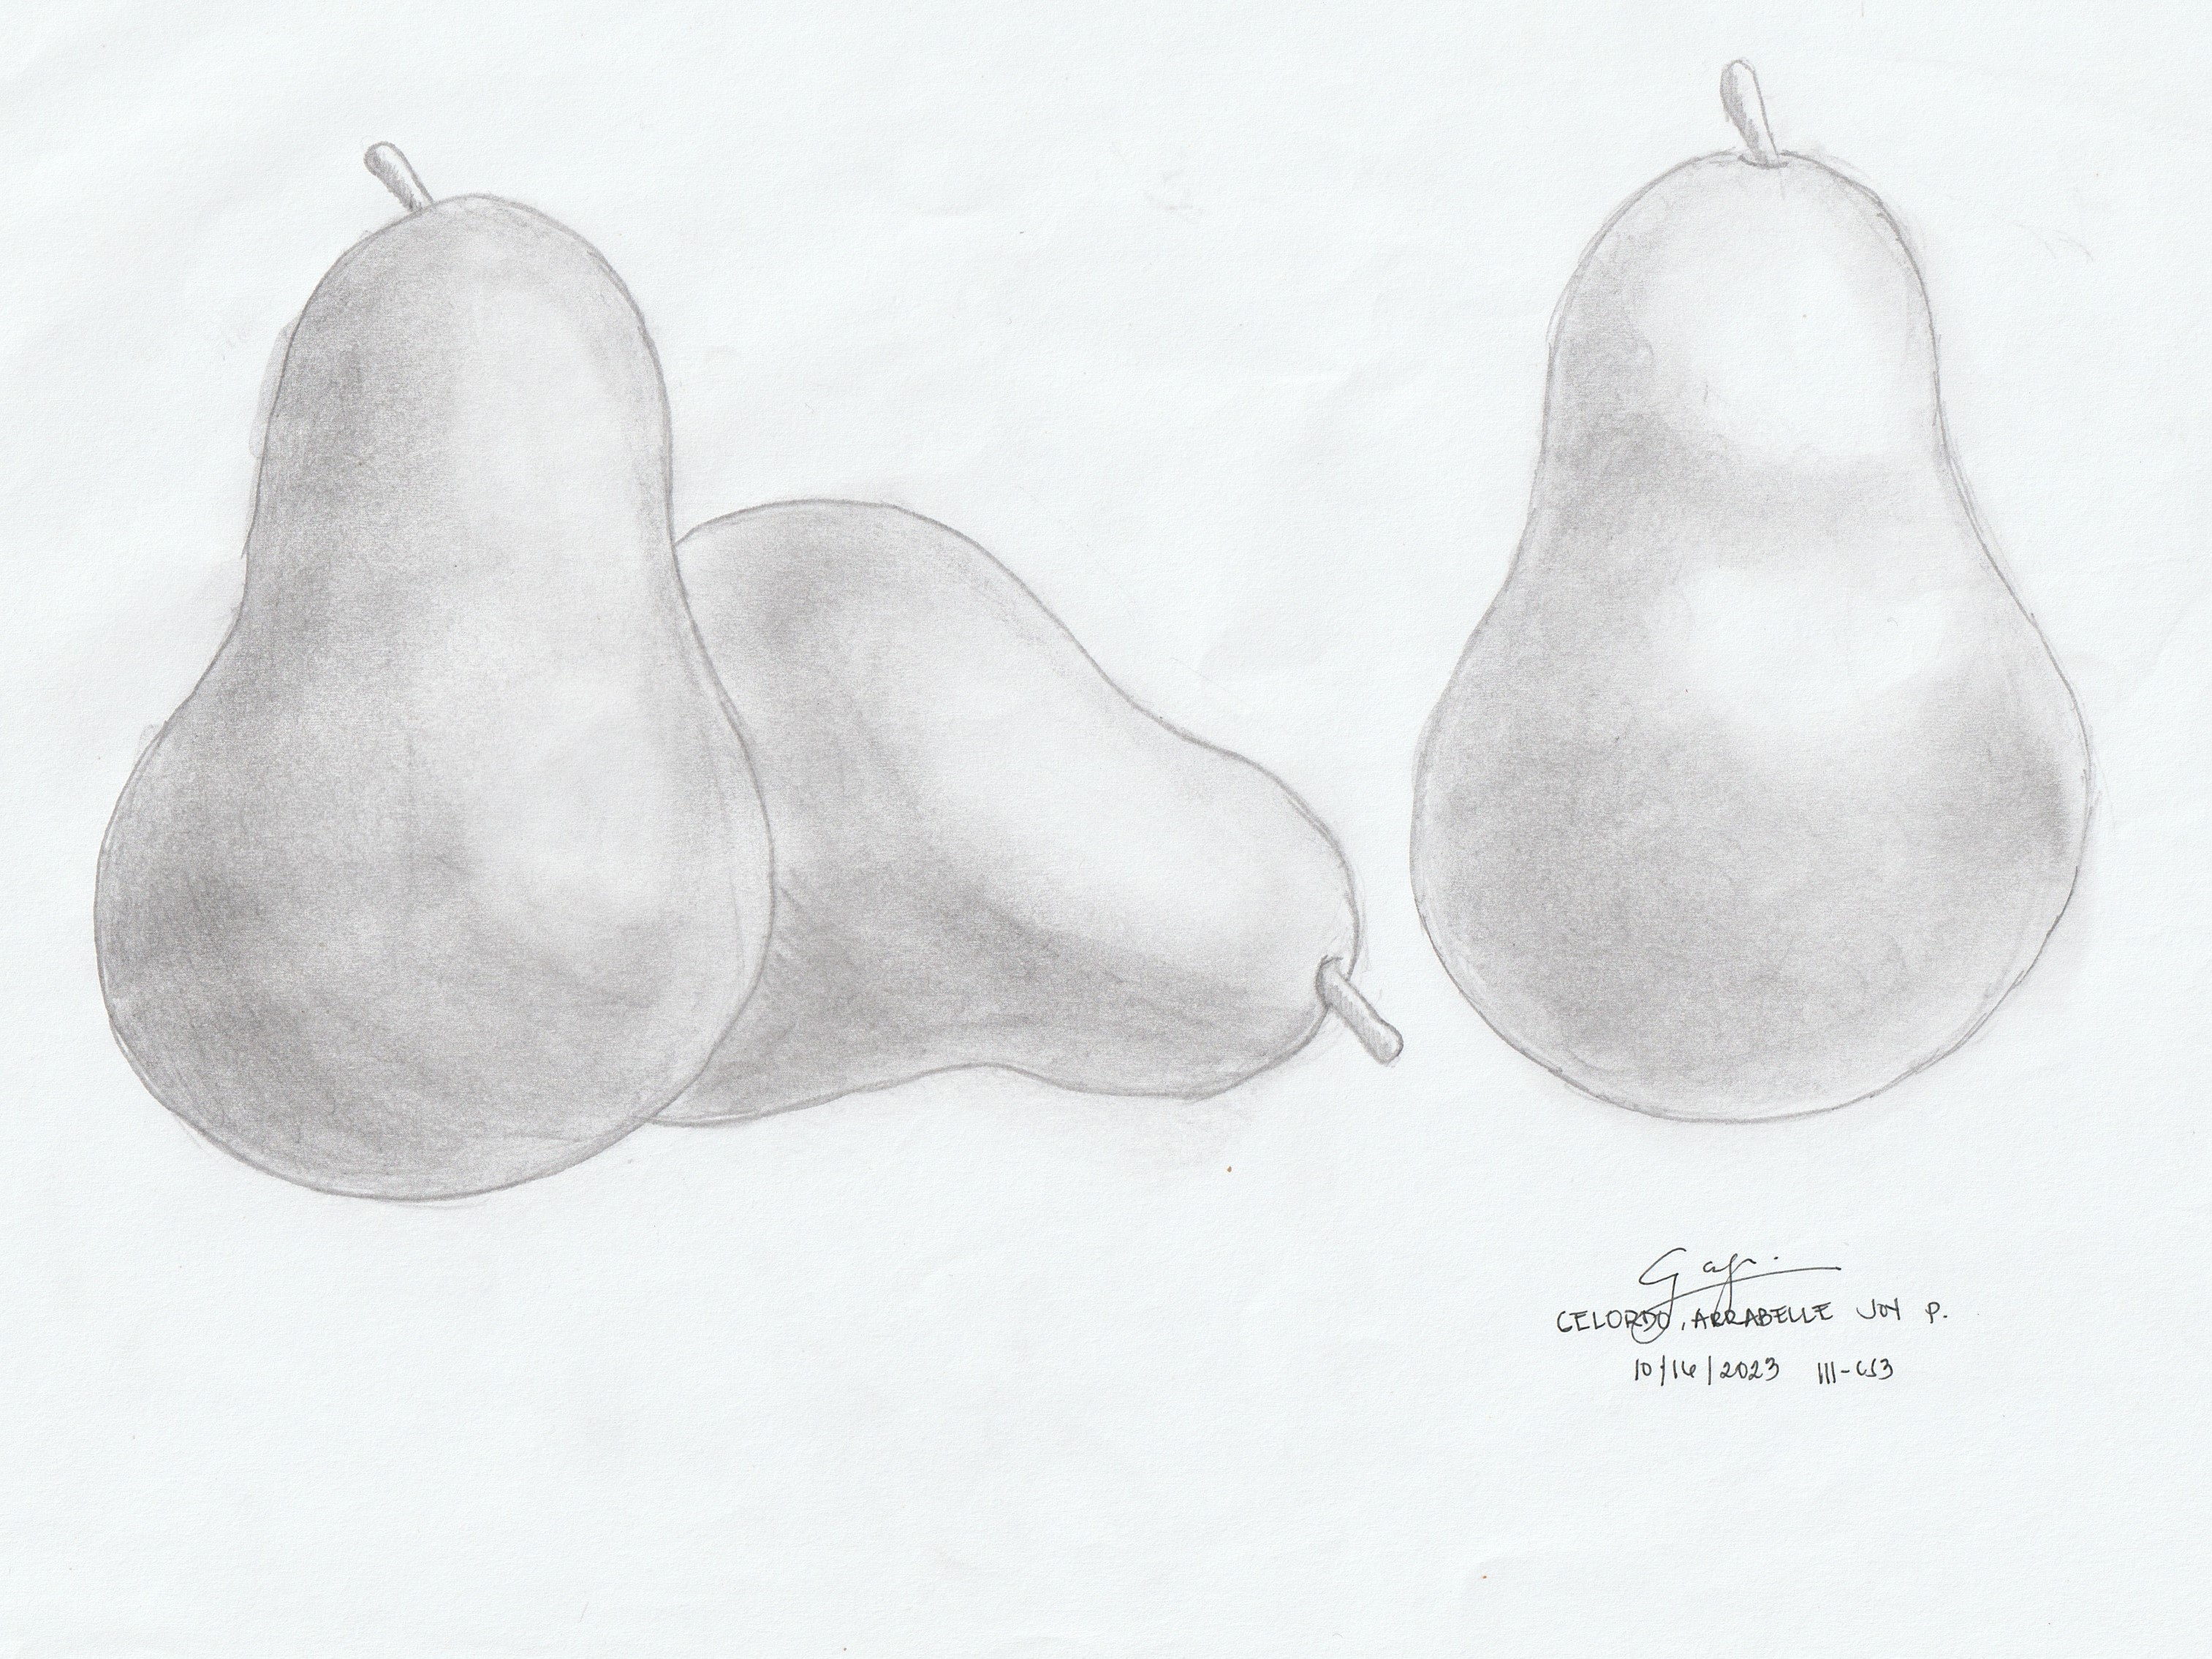 CELORDO, ARRABELLE JOY P.
10/16/2023 III-CS3